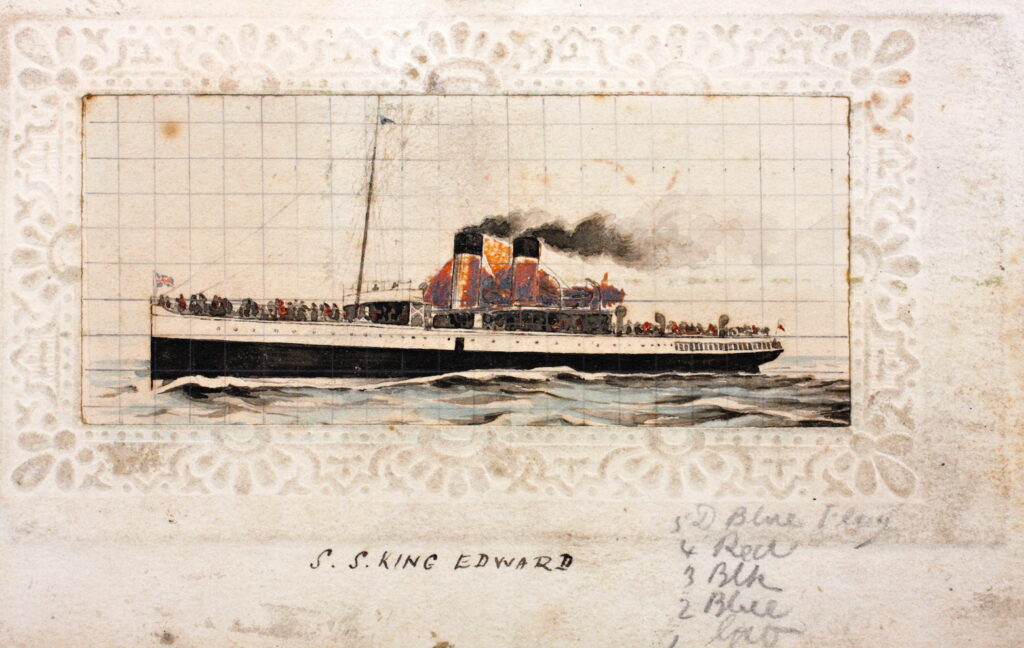 S. S. KING EDWARD
5 D Blue Flag
4 Red
3 Blk
2 Blue
1